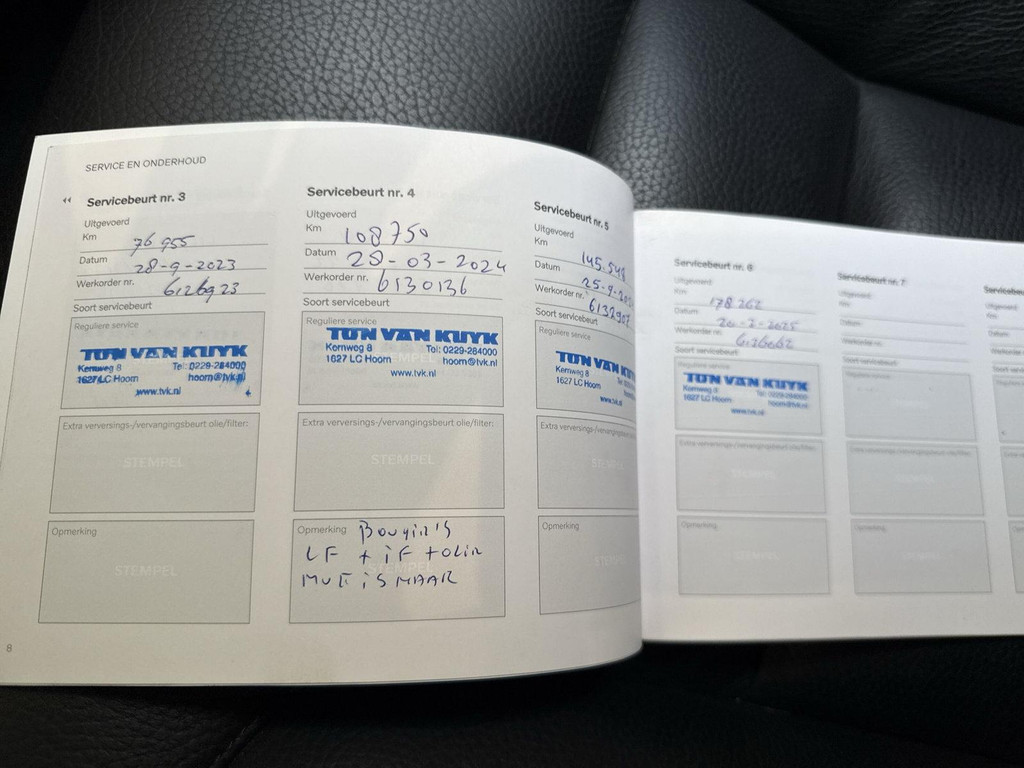 SERVICE EN ONDERHOUD
Servicebeurt nr. 3
Uitgevoerd
Km 76 955
Datum 28-9-2023
Werkorder nr. 6126923
Soort servicebeurt
Reguliere service
TON VAN KUYK
Kernweg 8 Tel: 0229-284000
1627 LC Hoorn hoorn@tvk.nl
www.tvk.nl
Extra verversings-/vervangingsbeurt olie/filter:
STEMPEL
Opmerking
STEMPEL
8
Servicebeurt nr. 4
Uitgevoerd
Km 108750
Datum 28-03-2024
Werkorder nr. 6130136
Soort servicebeurt
Reguliere service
TON VAN KUYK
Kernweg 8 Tel: 0229-284000
1627 LC Hoorn hoorn@tvk.nl
www.tvk.nl
Extra verversings-/vervangingsbeurt olie/filter:
STEMPEL
Opmerking Bougie's
LF + iF + olie
STEMPEL
Servicebeurt nr. 5
Uitgevoerd
Km
Datum
Werkorder nr.
Soort servicebeurt
Reguliere service
TON VAN
Kernweg 8
1627 LC Hoorn
www.tvk.nl
Extra verversings-/vervangingsbeurt
Opmerking
Servicebeurt nr. 6
Uitgevoerd
Km 178 262
Datum
Werkorder nr.
Soort servicebeurt
Reguliere service
TON VAN KUYK
Kernweg 8 Tel: 0229-284000
1627 LC Hoorn hoorn@tvk.nl
www.tvk.nl
Extra verversings-/vervangingsbeurt olie/filter:
Opmerking
Servicebeurt nr. 7
Uitgevoerd
Km
Datum
Werkorder nr.
Soort servicebeurt
Reguliere service
Opmerking